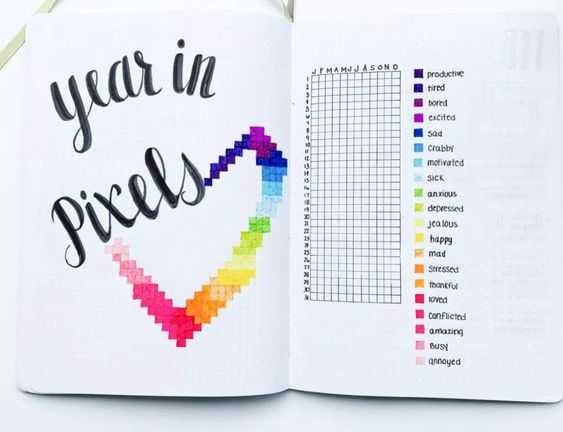 year in
Pixels
J F M A M J J A S O N D
1
2
3
4
5
6
7
8
9
10
11
12
13
14
15
16
17
18
19
20
21
22
23
24
25
26
27
28
29
30
31
productive
tired
bored
excited
sad
crabby
motivated
sick
anxious
depressed
jealous
happy
mad
stressed
thankful
loved
conflicted
amazing
busy
annoyed